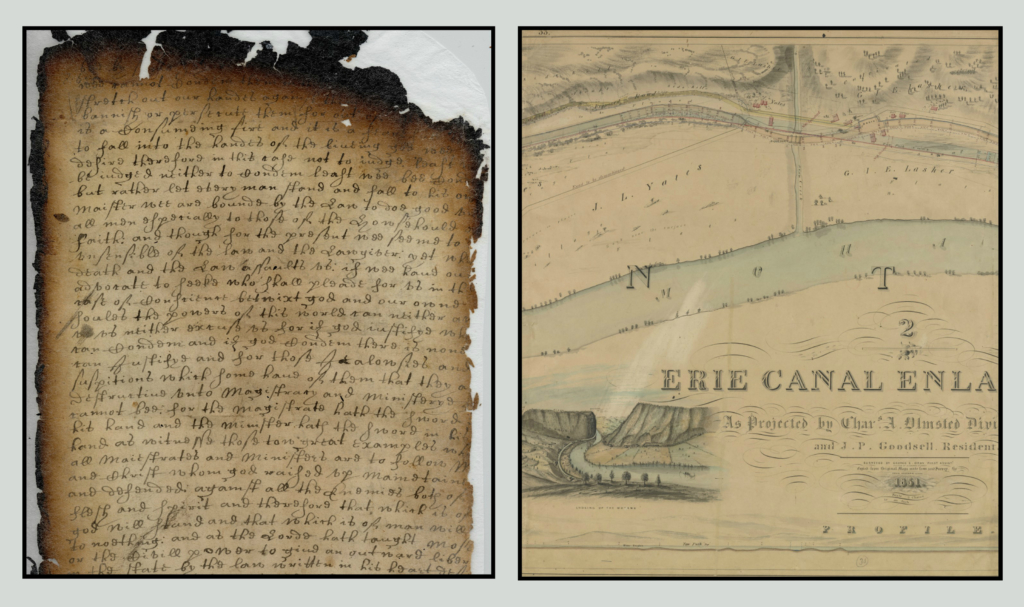 wee cannot
stretch out our handes again
bannish or persecute them for
is a Consumeing fire and it is a
to fall into the handes of the liueing god wee
desire therefore in this case not to iudge least
be iudged neither to Condem least wee bee
but rather let euery man stand and fall to his
Maister wee are bounde by the Law to doe good
all men espesially to those of the Howsehould
faith; and though for the present wee seeme to
vnsensible of the law and the Lawgiuer; yet
death and the Law assaults vs: if wee haue
aduocate to seeke who shall pleade for vs in th
case of Consciense betwixt god and our owne
soules the powers of this world can neither
vs neither excuse vs for if god iustifye wh
can Condem and if god Condem there is none
can Iustifye and for those Jealowsies an
suspitions which some haue of them that they
destructiue vnto Magistracy and Ministere
cannot bee; for the magistrate hath the sword
his hand and the Minister hath the sword in h
hand as witnesse those tow great examples
all Maistrates and Ministers are to follow M
and Christ whom god raised vp Maintain
and defended; against all the Enemies both of
flesh and spirit and therefore that which is of
god will stand and that which is of man will
to noething: and as the Lorde hath taught Mos
or the Ciuill power to giue an outward liber
the state by the law written in his heart
33.
J. L. Yates
G. & E. Lasher
N T
M O H
2
ERIE CANAL ENLA
As Projected by Char.s A. Olmsted Divi
and J. P. Goodsell Resident
1841
PROFILE.